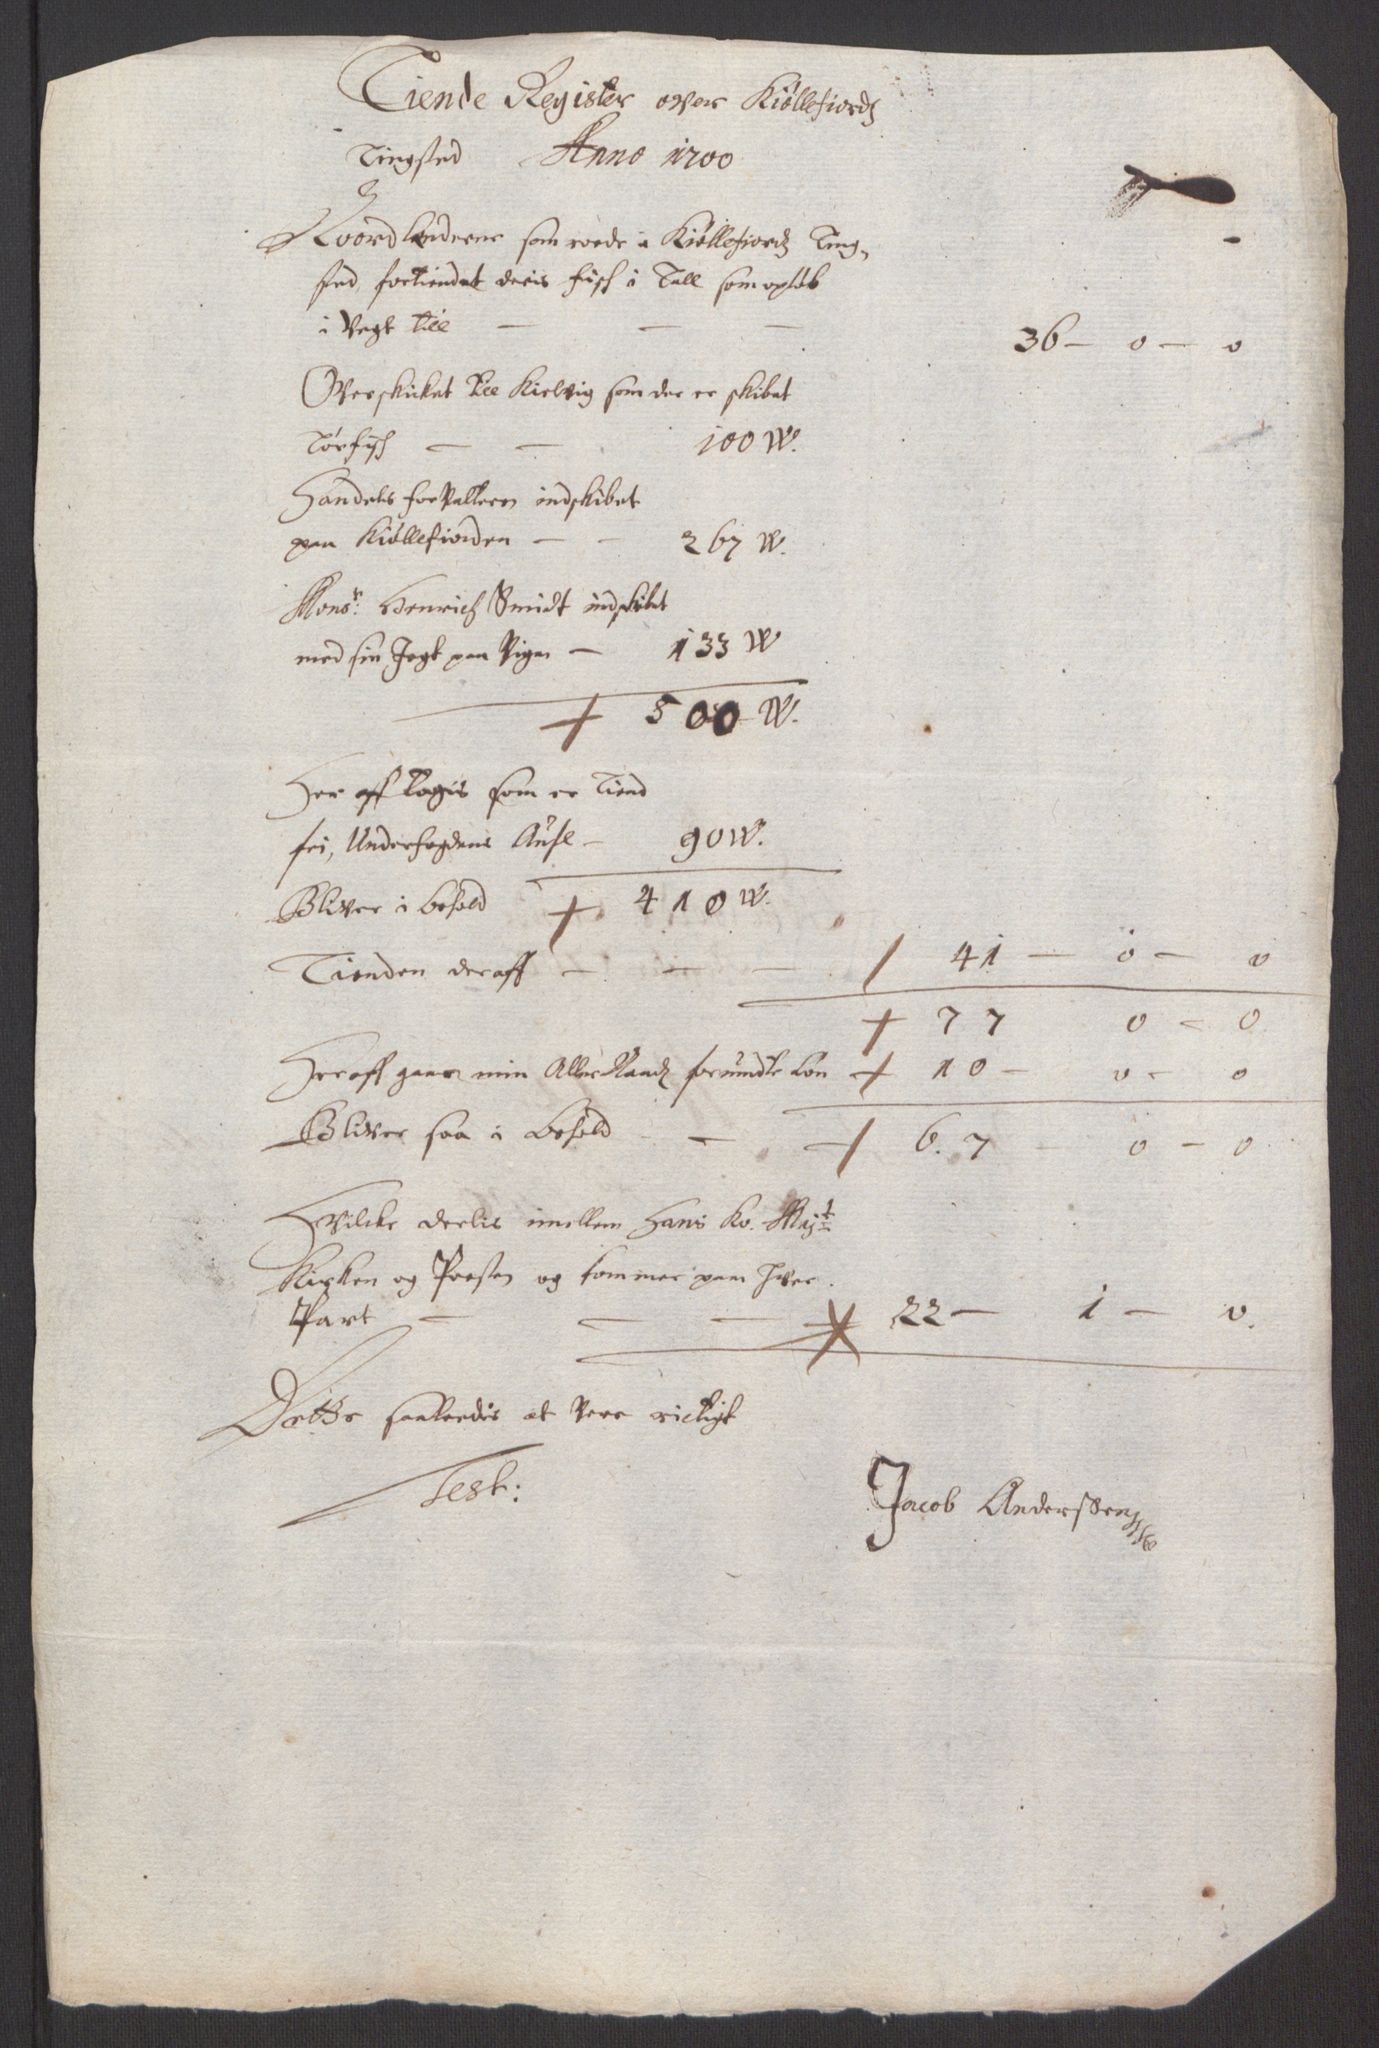 Tiende Register over Kiöllefiordz
Tingsted Anno 1700
Noordlenderne som roede i Kiöllefiordz Ting-
sted, fortiendet deris fisch i Tall som opløb
i Vegt till — — — 36 — 0 — 0
Overskicket till Kielvig som der er skibet
Törfisch — — 100 W.
Handels forvalteren indskibet
paa Kiöllefiorden — — 267 W.
Monsr: Henrich Smidt indskibet
med sin Jegt paa Vigen — 133 W
+ 500 W.
Her aff tagis som er Tiend
fri, Underfogdens — 90 W.
Bliver i behold + 410 W.
Tienden deraff — — — / 41 — 0 — 0
+ 77 0 — 0
Heraff gaar min Aller Naadz forundte Lön + 10 — 0 — 0
Bliver saa i behold — — + 6.7 — 0 — 0
Hvilcke deelis imellem Hans Ko. Maÿtt
Kirken og Presten og kommer paa hver
Part — — — 22 — 1 — 0.
Dette saaledis at vere rictigt
Test:
Jacob Anderssen